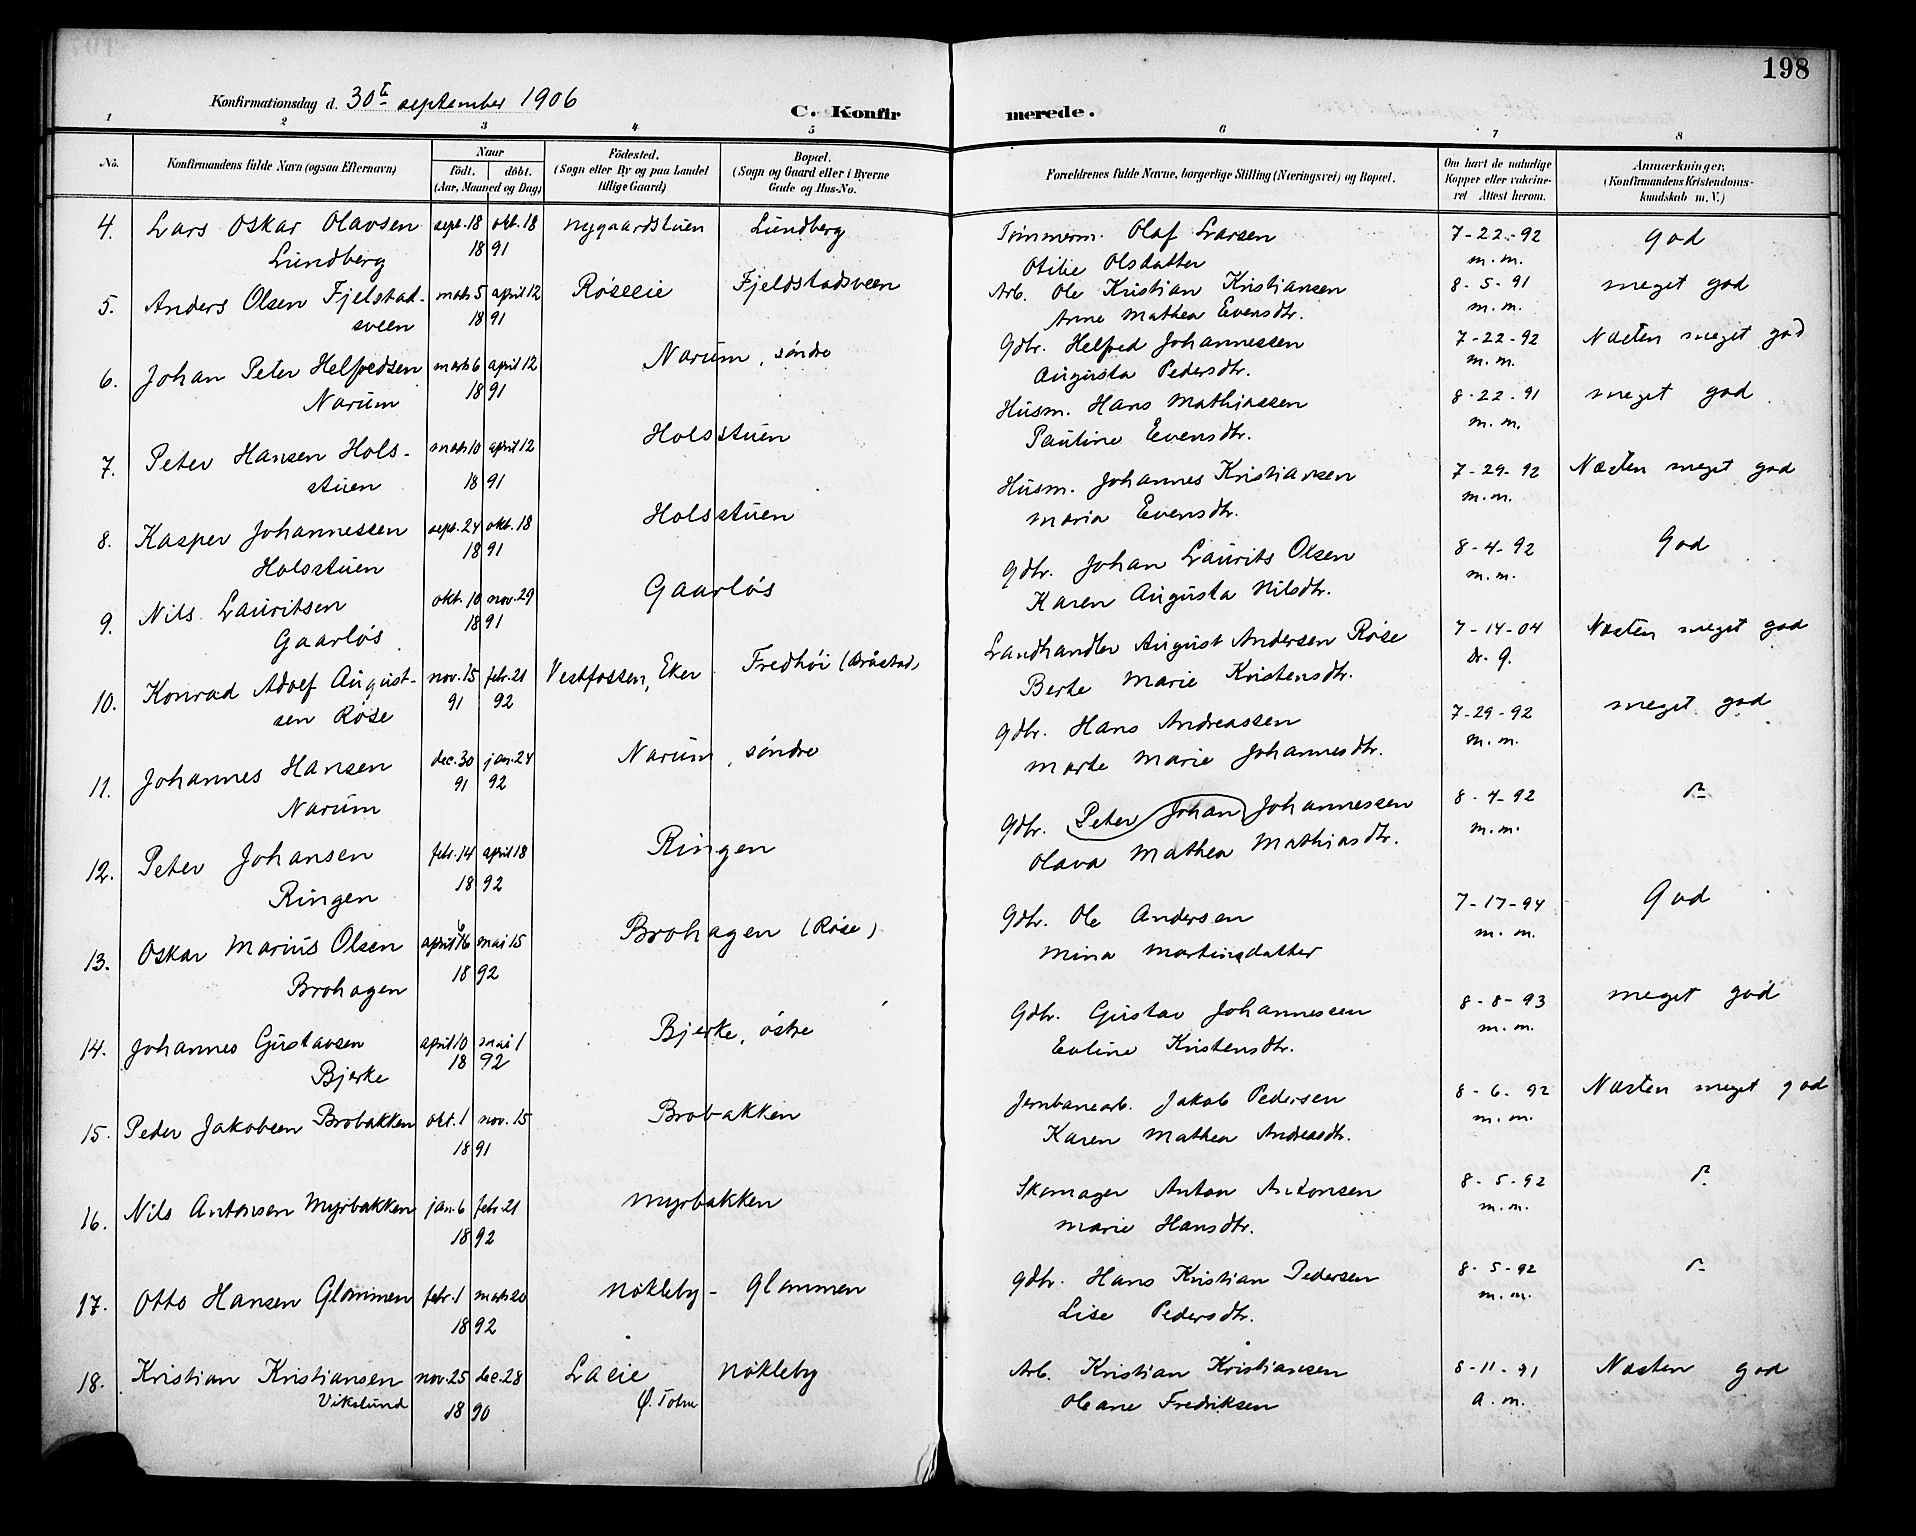 198
Konfirmationsdag d. 30te september 1906
C. Konfirmerede.
1 2 3 4 5 6 7 8
No. Konfirmandens fulde Navn (ogsaa Efternavn) Naar födt. döbt. (Aar, Maaned og Dag) Födested. (Sogn eller By og paa Landet tillige Gaard) Bopæl. (Sogn og Gaard eller i Byerne Gade og Hus-No. Forældrenes fulde Navne, borgerlige Stilling (Næringsvei) og Bopæl. Om havt de naturlige Kopper eller vakcineret Attest herom. Anmærkninger. (Konfirmandens Kristendomskundskab m. V.)
4. Lars Oskar Olavsen sept. 18 okt. 18 Nygaardstuen Lundberg Tømmerm. Olaf Larsen 7-22-92 God
Lundberg 18 91 Otilie Olsdatter m.m.
5. Anders Olsen Fjelstad- marts 5 april 12 Røseeie Fjeldstadsveen Arb. Ole Kristian Kristiansen 8-5-91 meget god
sveen 18 91 Anne Mathea Evensdtr. m.m.
6. Johan Peter Helfredsen marts 6 april 12 Narum, søndre Gdbr. Helfred Johannessen 7-22-92 Næsten meget god
Narum 18 91 Augusta Pedersdtr. m.m.
7. Peter Hansen Hols- marts 10 april 12 Holsstuen Husm. Hans Mathiassen 8-22-91 meget god
stuen 18 91 Pauline Evensdtr. m.m.
8. Kasper Johannessen sept. 24 okt. 18 Holsstuen Husm. Johannes Kristiansen 7-29-92 Næsten meget god
Holsstuen 18 91 Maria Evensdtr. m.m.
9. Nils Lauritsen okt. 10 nov. 29 Gaarløs Gdbr. Johan Laurits Olsen 8-4-92 God
Gaarløs 18 91 Karen Augusta Nilsdtr. m.m.
10. Konrad Adolf August- nov. 15 febr. 21 Vestfossen, Eker Fredhøi (Bråstad) Landhandler August Andersen Røise 7-14-04 Næsten meget god
sen Røise 91 92 Berte Marie Kristensdtr. dr. G.
11. Johannes Hansen dec. 30 jan. 24 Narum, søndre Gdbr. Hans Andreassen 7-29-92 meget god
Narum 91 92 Marte Marie Johannesdtr. m.m.
12. Peter Johansen febr. 14 april 18 Ringen Gdbr. Peter Johan Johannessen 8-4-92 do
Ringen 18 92 Olava Mathea Mathiasdtr. m.m.
13. Oskar Marius Olsen april 16 mai 15 Brohagen (Røise) Gdbr. Ole Andersen 7-17-94 God
Brohagen 18 92 Mina Martinsdatter m.m.
14. Johannes Gustavsen april 10 mai 1 Bjerke, østre Gdbr. Gustav Johannessen 8-8-93 meget god
Bjerke 18 92 Eveline Kristensdtr. m.m.
15. Peder Jakobsen Brobakken okt. 1 nov. 15 Brobakken Jernbanearb. Jakob Pedersen 8-6-92 Næsten meget god
18 91 Karen Mathea Andreasdtr. m.m.
16. Nils Antonsen Myrbakken jan. 6 febr. 21 Myrbakken Skomager Anton Antonsen 8-5-92 do
18 92 Marie Hansdtr. m.m.
17. Otto Hansen Glømmen febr. 1 marts 20 Nøkleby- Glømmen Gdbr. Hans Kristian Pedersen 8-5-92 do
18 92 Lise Pedersdtr. m.m.
18. Kristian Kristiansen nov. 25 dec. 28 Laeie Nøkleby Arb. Kristian Kristiansen 8-11-91 Næsten god
Vikslund 18 90 Ø. Toten Oleane Fredriksen a.m.